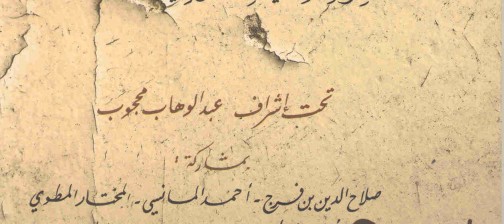 تحت إشراف عبد الوهاب محجوب
بمشاركة :
صلاح الدين بن فرج - أحمد المانسي - المختار المطوي